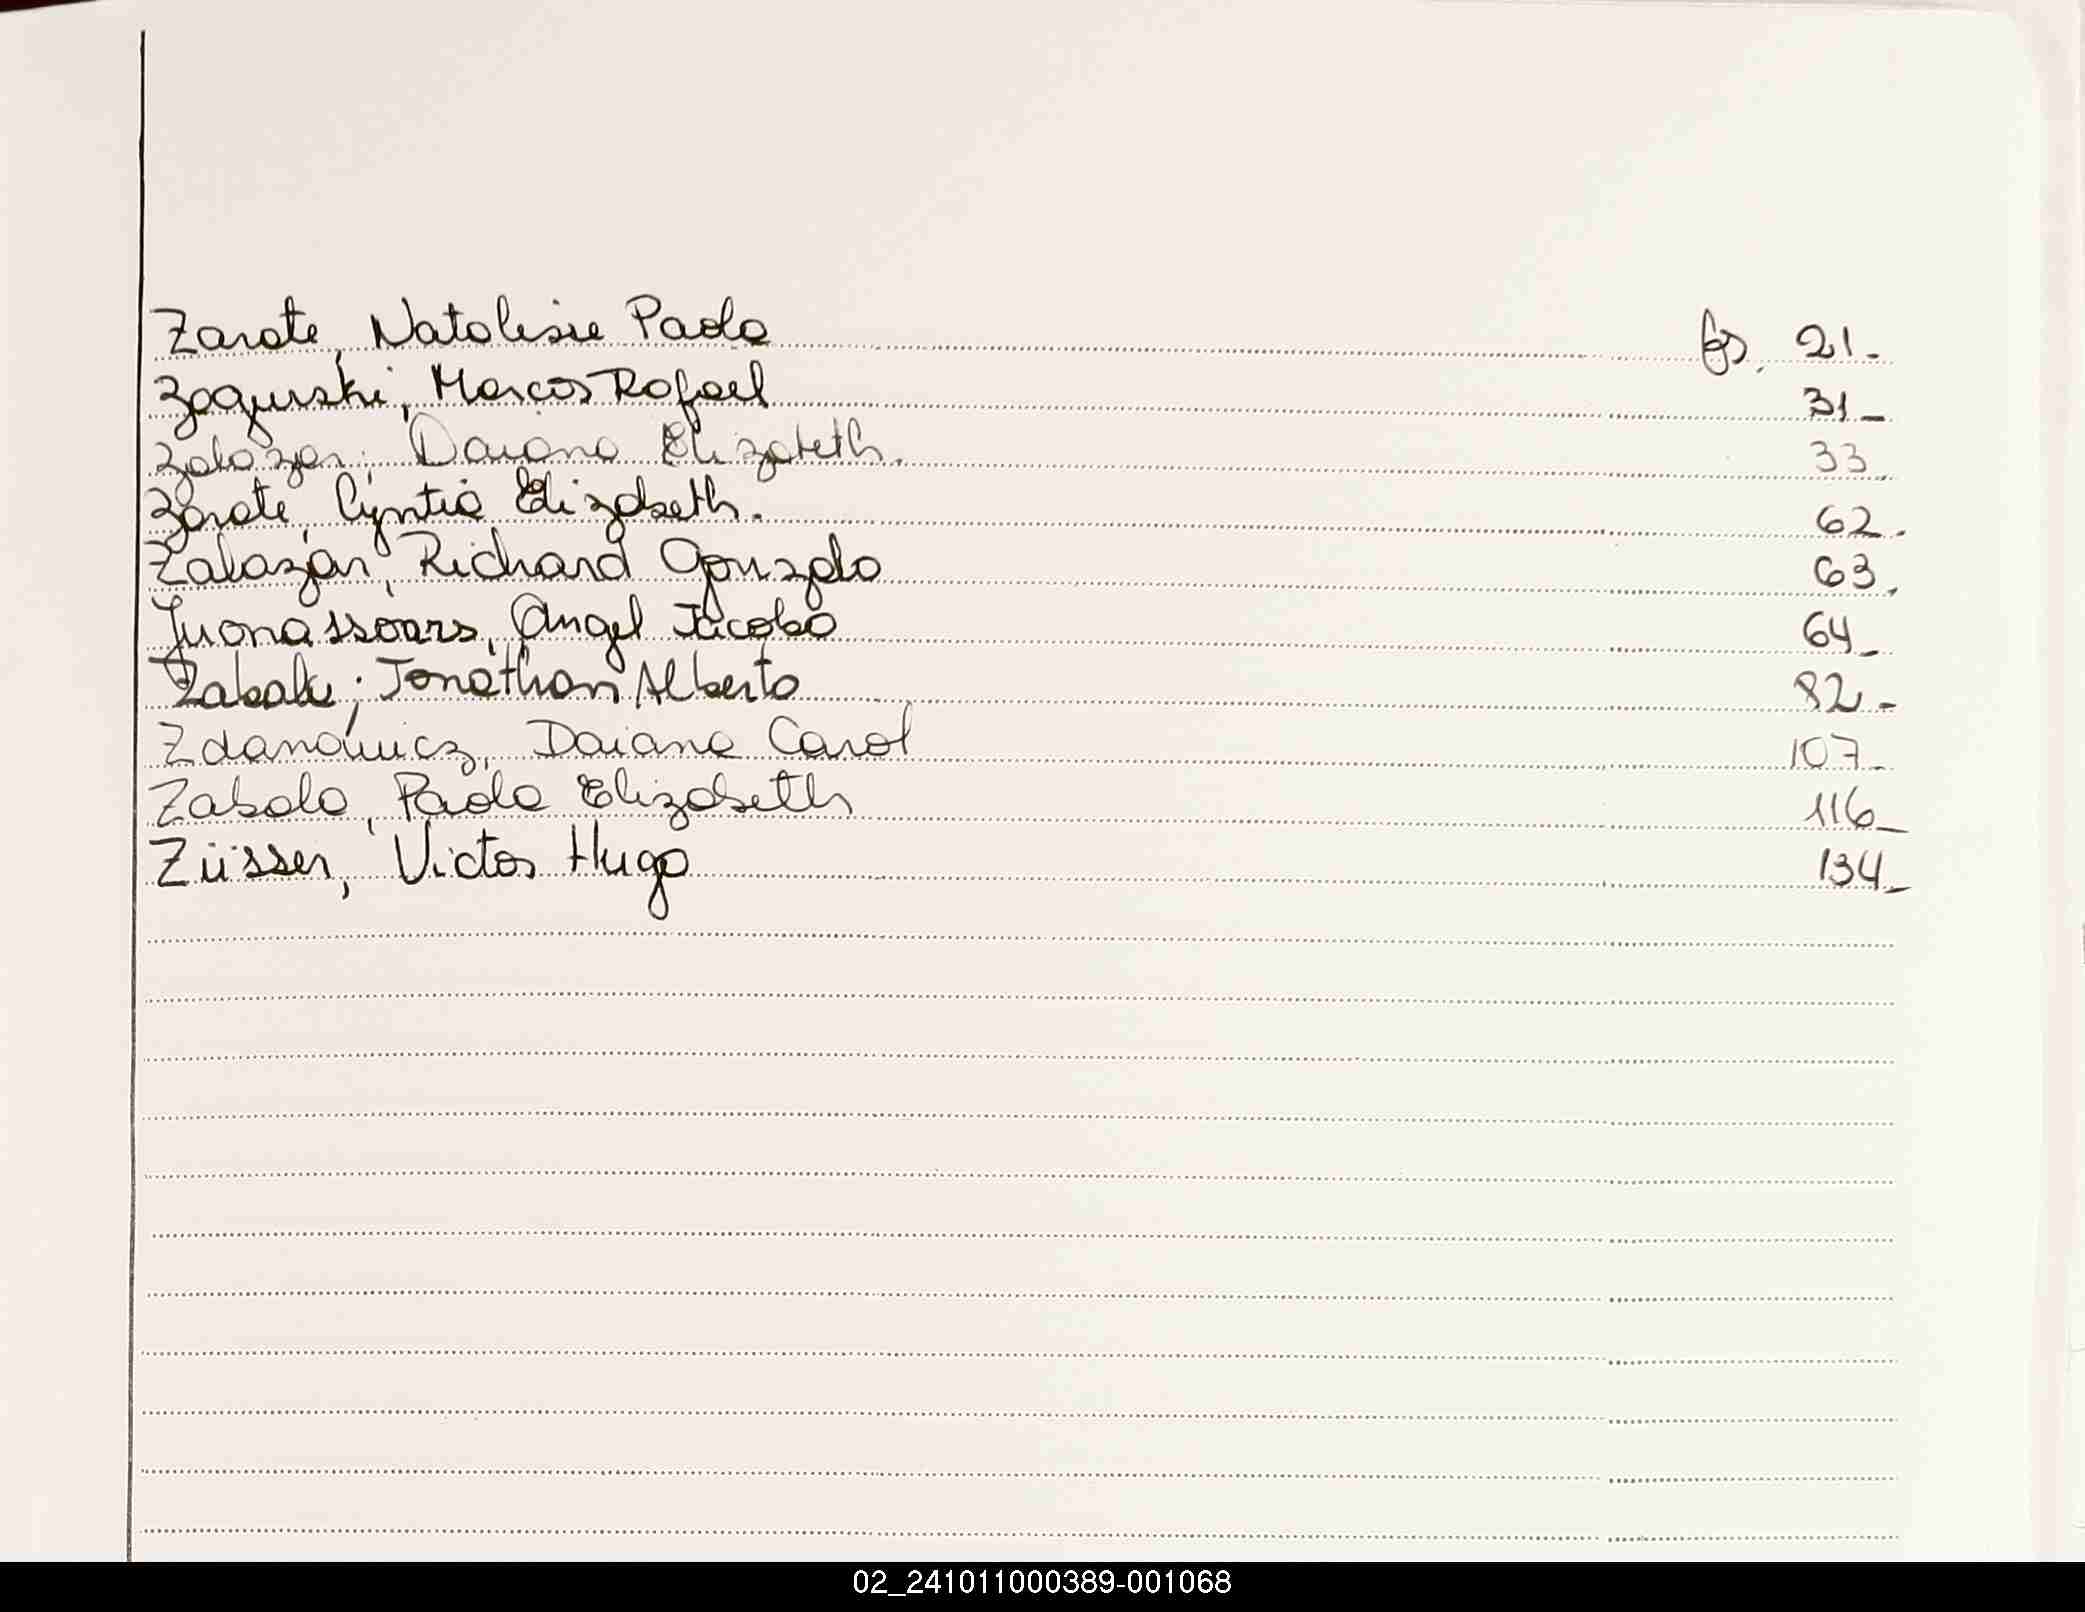 Zarate, Natalisie Paola fs. 21-
Zagurski, Marcos Rafael 31-
Zalazar, Daiana Elizabeth. 33.
Zarate, Cyntia Elizabeth. 62.
Zalazar, Richard Gonzalo 63.
Angel Jacobo 64-
Zabala, Jonathan Alberto 82-
Zdanovicz, Daiana Carol 107-
Zabala, Paola Elizabeth 116-
Züsser, Victor Hugo 134-
02_241011000389-001068